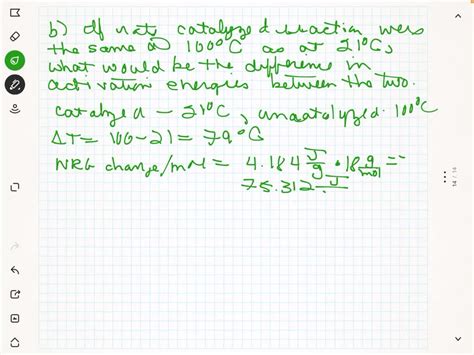 b) If rate catalyzed reaction were
the same @ 100°C as at 21°C,
what would be the difference in
activation energies between the two.
catalyzed - 21°C, uncatalyzed. 100°C
ΔT = 100-21 = 79°C
NRG change/mol = 4.184 J/g · 18 g/mol =
75.312 J
14 / 14